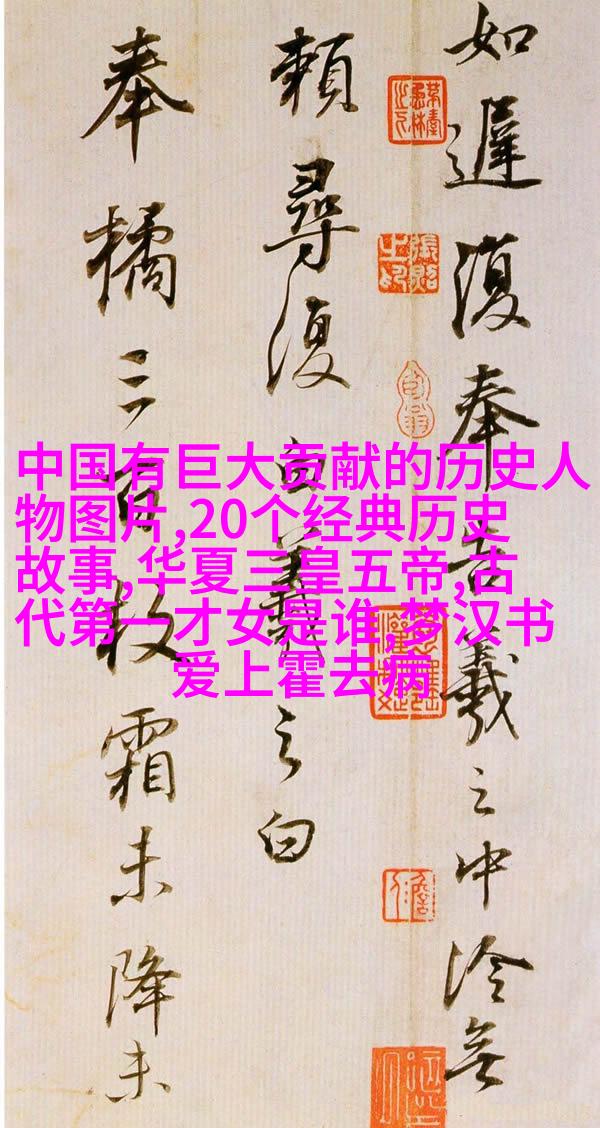 如遲復奉告羲之中冷無
賴尋復白羲之白
奉橘三百枚霜未降未
中国有巨大贡献的历史人
物图片,20个经典历史
故事,华夏三皇五帝,古
代第一才女是谁,梦汉书
爱上霍去病